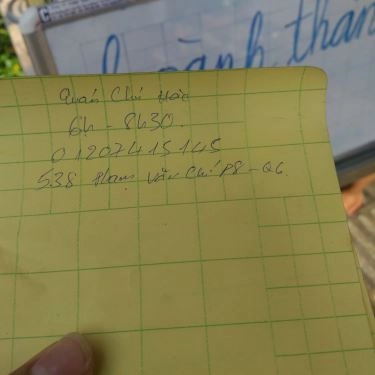 hành thán
Quán Chú Hà
6h - 8h30.
01207415145
538 Phạm Văn Chí P8 - Q6